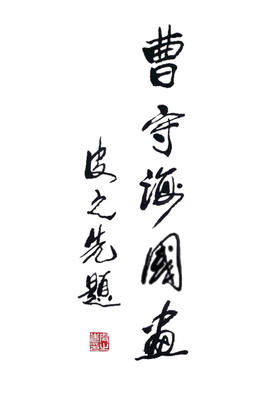 曹守海國畫
皮之先題